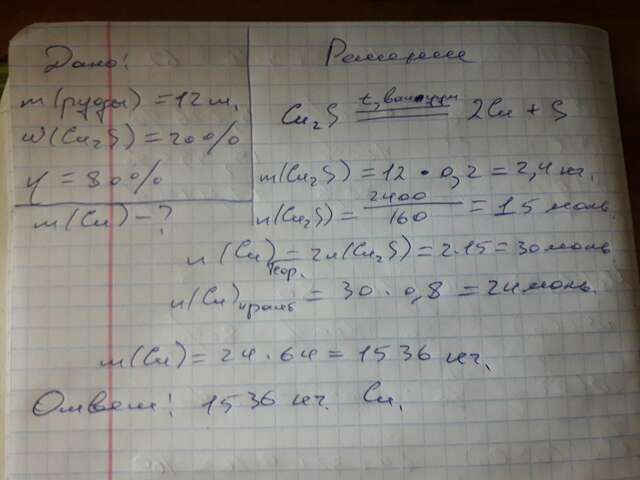 Дано:
m(руды) = 12 т.
w(Cu₂S) = 20%
η = 80%
m(Cu) - ?
Решение
Cu₂S =(t, вакуум)= 2Cu + S
m(Cu₂S) = 12 · 0,2 = 2,4 кг.
n(Cu₂S) = 2400/160 = 15 моль.
n(Cu)теор. = 2n(Cu₂S) = 2·15 = 30 моль
n(Cu)практ = 30 · 0,8 = 24 моль.
m(Cu) = 24 · 64 = 1536 кг.
Ответ: 1536 кг. Cu.